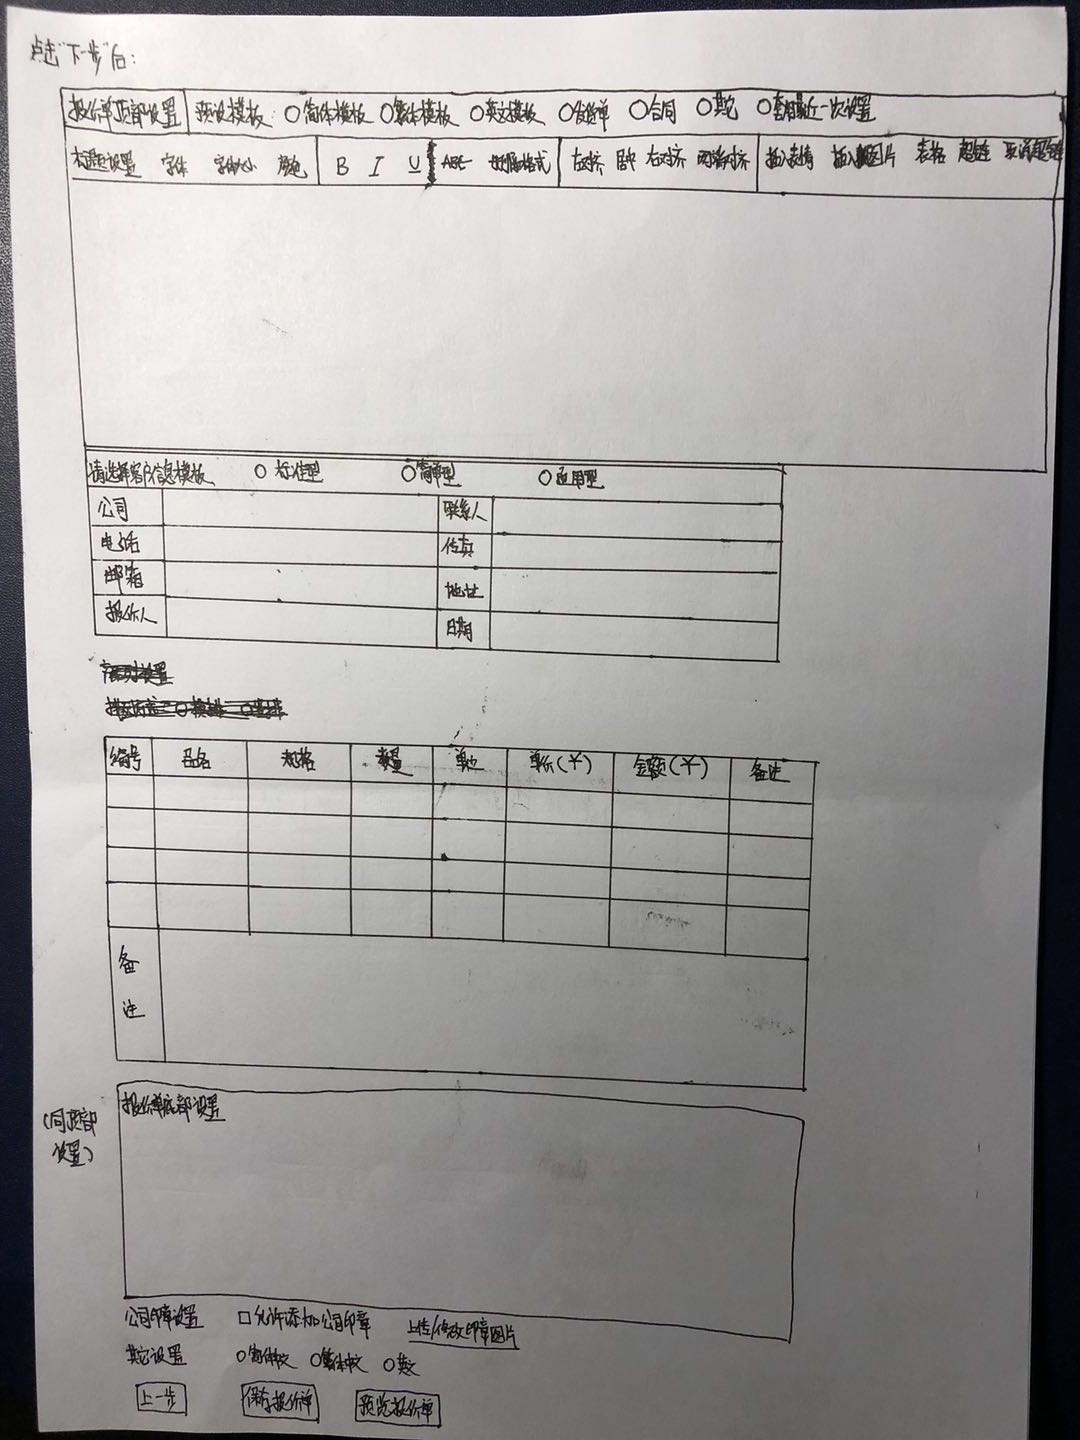 点击"下一步"后:
报价单顶部设置 预设模板: 简体模板 繁体模板 英文模板 送货单 合同 其它 套用最近一次设置
标题设置 字体 字体大小 颜色 B I U ABC 删除格式 左对齐 居中 右对齐 两端对齐 插入表情 插入图片 表格 超链 取消超链
请选择客户信息模板 标准型 简单型 通用型
公司 联系人
电话 传真
邮箱 地址
报价人 日期
编号 品名 规格 数量 单位 单价(¥) 金额(¥) 备注
备
注
报价单底部设置
(同顶部
设置)
公司印章设置 允许添加公司印章 上传/修改印章图片
其它设置 简体中文 繁体中文 英文
上一步 保存报价单 预览报价单